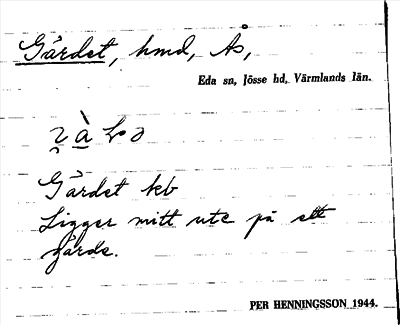 Gärdet, hmd, Ås,
Eda sn, Jösse hd, Värmlands län.
Gärdet kb
Ligger mitt ute på ett
gärde.
PER HENNINGSSON 1944.